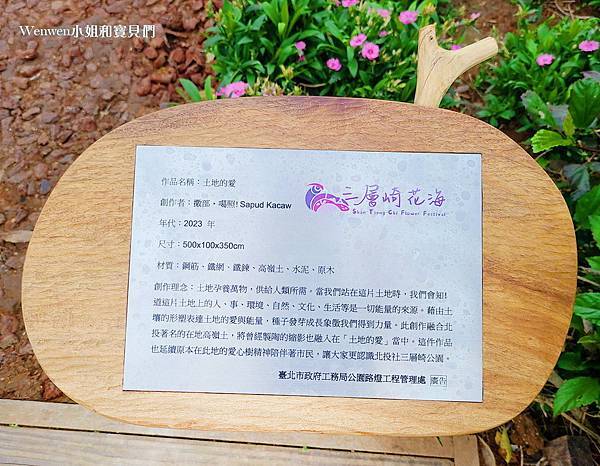 Wenwen小姐和寶貝們
作品名稱：土地的愛
創作者：撒部・噶照! Sapud Kacaw
三層崎花海
San Tseng Chi Flower Festival
年代：2023 年
尺寸：500x100x350cm
材質：鋼筋、鐵網、鐵鍊、高嶺土、水泥、原木
創作理念：土地孕養萬物，供給人類所需。當我們站在這片土地時，我們會知!
道這片土地上的人、事、環境、自然、文化、生活等是一切能量的來源。藉由土
壤的形塑表達土地的愛與能量，種子發芽成長象徵我們得到力量。此創作融合北
投著名的在地高嶺土，將曾經製陶的縮影也融入在「土地的愛」當中。這件作品
也延續原本在此地的愛心樹精神陪伴著市民，讓大家更認識北投社三層崎公園。
臺北市政府工務局公園路燈工程管理處 廣告